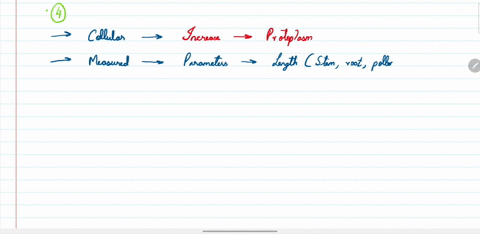 ④
→ Cellular → Increase → Protoplasm
→ Measured → Parameters → Length (Stem, root, pollen